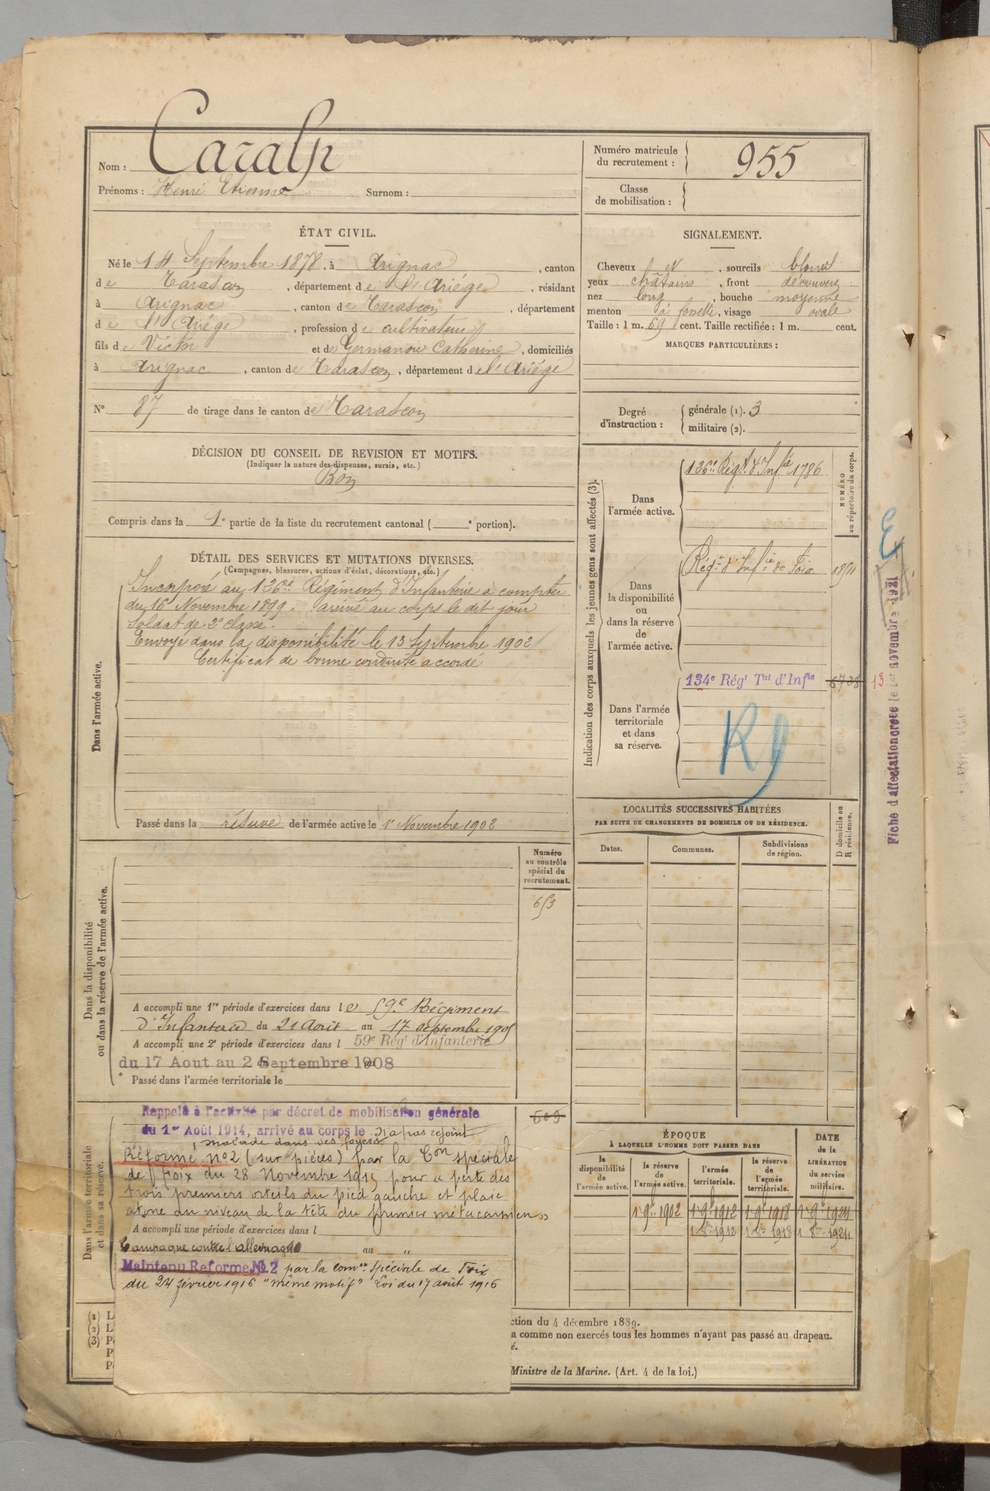 Nom : Caralp
Prénoms : Henri Etienne Surnom :
Numéro matricule du recrutement : 955
Classe de mobilisation :
ÉTAT CIVIL.
Né le 14 Septembre 1878, à Arignac, canton
de Tarascon, département de l'Ariège, résidant
à Arignac, canton de Tarascon, département
de l'Ariège, profession de cultivateur
fils de Victor et de Germanou Catherine, domiciliés
à Arignac, canton de Tarascon, département de l'Ariége
N° 87 de tirage dans le canton de Tarascon
SIGNALEMENT.
Cheveux et, sourcils blond
yeux châtains, front découvert
nez long, bouche moyenne
menton à fossette, visage ovale
Taille : 1 m. 69 cent. Taille rectifiée : 1 m. cent.
MARQUES PARTICULIÈRES :
Degré d'instruction : générale (1). 3
militaire (2).
DÉCISION DU CONSEIL DE REVISION ET MOTIFS.
(Indiquer la nature des dispenses, sursis, etc.)
Bon
Compris dans la 1e partie de la liste du recrutement cantonal ( e portion).
DÉTAIL DES SERVICES ET MUTATIONS DIVERSES.
(Campagnes, blessures, actions d'éclat, décorations, etc.)
Dans l'armée active.
Incorporé au 126e Régiment d'Infanterie à compter
du 16 Novembre 1899. arrivé au corps le dit jour
soldat de 2e classe.
Envoyé dans la disponibilité le 13 Septembre 1902
Certificat de bonne conduite accordé
Passé dans la réserve de l'armée active le 1r Novembre 1902
Indication des corps auxquels les jeunes gens sont affectés (3).
NUMÉRO au répertoire du corps.
Dans l'armée active.
126e Régt d'Infie 1786
Dans la disponibilité ou dans la réserve de l'armée active.
Régt d'Infie de Foix
Dans l'armée territoriale et dans sa réserve.
134e Régt Tal d'Infie
Fiche d'affectation créée le 1er novembre 1921
LOCALITÉS SUCCESSIVES HABITÉES
PAR SUITE DE CHANGEMENTS DE DOMICILE OU DE RÉSIDENCE.
D domicile ou R résidence.
Dates. Communes. Subdivisions de région.
Dans la disponibilité ou dans la réserve de l'armée active.
Numéro au contrôle spécial du recrutement.
653
A accompli une 1re période d'exercices dans le 59e Régiment
d'Infanterie du 21 Août au 17 septembre 1905
A accompli une 2e période d'exercices dans l 59e Régt d'Infanterie
du 17 Aout au 2 Septembre 1908
Passé dans l'armée territoriale le
Dans l'armée territoriale et dans sa réserve.
Rappelé à l'activité par décret de mobilisation générale
du 1er Août 1914, arrivé au corps le n'a pas rejoint
malade dans ses foyers
Réformé n°2 (sur pièces) par la Con spéciale
de Foix du 28 Novembre 1915 pour « perte des
trois premiers orteils du pied gauche et plaie
atone au niveau de la tête du premier métacarpien »
A accompli une période d'exercices dans l
Campagne contre l'allemagne au "
Maintenu Réformé N°2 par la comon spéciale de Foix
du 24 février 1916 "même motif" Loi du 17 août 1915
ÉPOQUE
À LAQUELLE L'HOMME DOIT PASSER DANS
DATE de la LIBÉRATION du service militaire.
la disponibilité de l'armée active. la réserve de l'armée active. l'armée territoriale. la réserve de l'armée territoriale.
1r 9bre 1902 1r 9bre 1912 1r 9bre 1918 1r 9bre 1924
ction du 4 décembre 1889.
a comme non exercés tous les hommes n'ayant pas passé au drapeau.
Ministre de la Marine. (Art. 4 de la loi.)